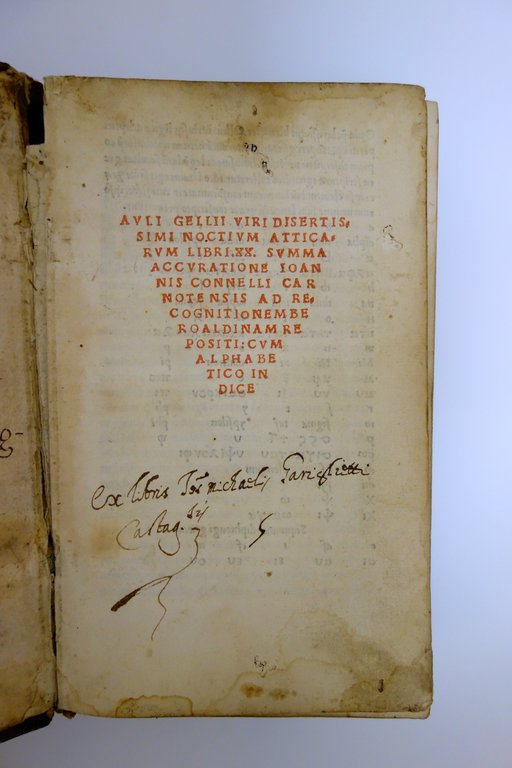 AVLI GELLII VIRI DISERTIS-
SIMI NOCTIVM ATTICA-
RVM LIBRI.XX. SVMMA
ACCVRATIONE IOAN
NIS CONNELLI CAR
NOTENSIS AD RE-
COGNITIONEMBE
ROALDINAMRE
POSITI:CVM
ALPHABE
TICO IN
DICE
ex libris michaelis Gariglietti